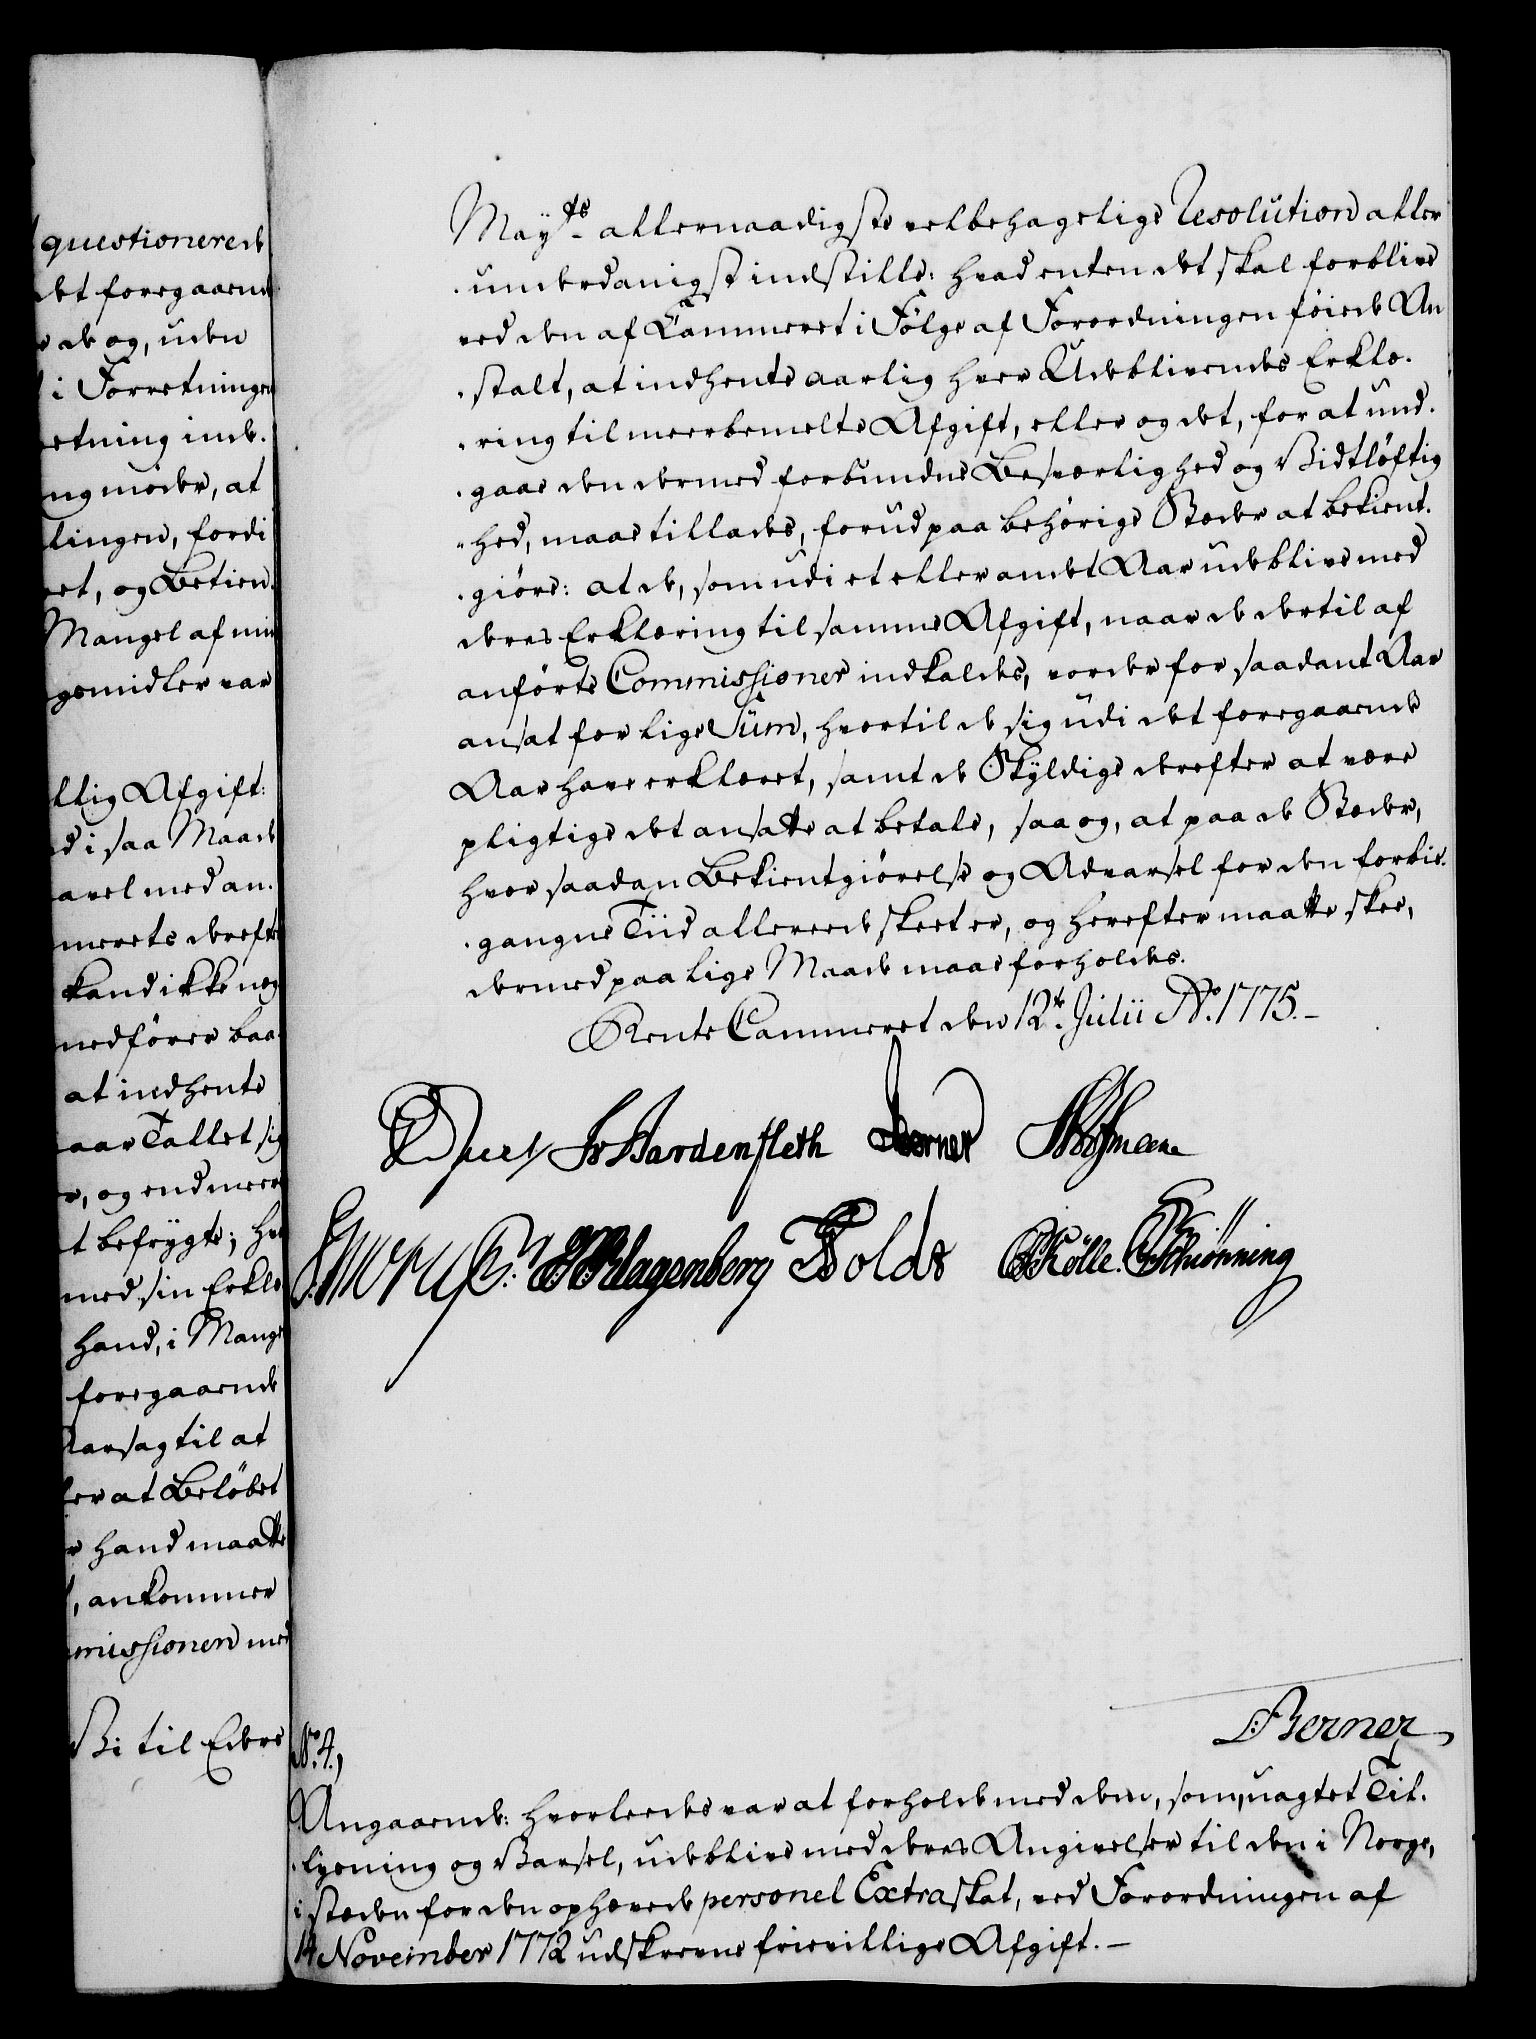 questionerede
det foregaaende
de og, uden
i Forretningen
etning inde-
ng møder, at
lingen, fordi
et, og Betien-
Mangel af min
gsmidler var
llig Afgift:
d i saa Maade
avel med an-
merets derefter
kand ikke nog
medfører baa-
at indhente
aar Tallet sig
r, og end meere
t befrygte; hv
med sin Erklæ
hand, i Mangel
foregaaende
Aarsag til at
ler at Beløbet
r hand maatte
, ankommer
missionen med
Vi til Eders
Mayts allernaadigste velbehagelige Resolution aller-
underdanigst indstille: hvad enten det skal forblive
ved den af Cammeret i Følge af Forordningen føiede An-
stalt, at indhente aarlig hver Udeblivendes Erklæ-
ring til meerbemelte Afgift, eller og det, for at und-
gaae den dermed forbundne Besværlighed og Vidtløftig-
hed, maae tillades, forud paa behørige Stæder at bekient-
giøre: at de, som udi et eller andet Aar udeblive med
deres Erklæring til samme Afgift, naar de dertil af
anførte Commissioner indkaldes, vorder for saadant Aar
ansat for lige Sum, hvortil de sig udi det foregaaende
Aar have erklæret, samt de Skyldige derefter at være
pligtige det ansatte at betale, saa og, at paa de Stæder,
hvor saadan Bekientgiørelse og Advarsel for den forbi-
gangne Tiid allereede skeet er, og herefter maatte skee,
dermed paa lige Maade maae forholdes.
Rente Cammeret den 12te Julii Ao. 1775.
Hardenfleth Berner Hofmann
Klagenberg Holde Kølle Schiönning
Berner
No. 4,
Angaaende: hvorledes var at forholde med dem, som, uagtet Til-
lysning og Varsel, udeblive med deres Angivelser til den i Norge,
i stæden for den ophævede personel Extraskat, ved Forordningen af
14 November 1772 udskrevne frievillige Afgift.